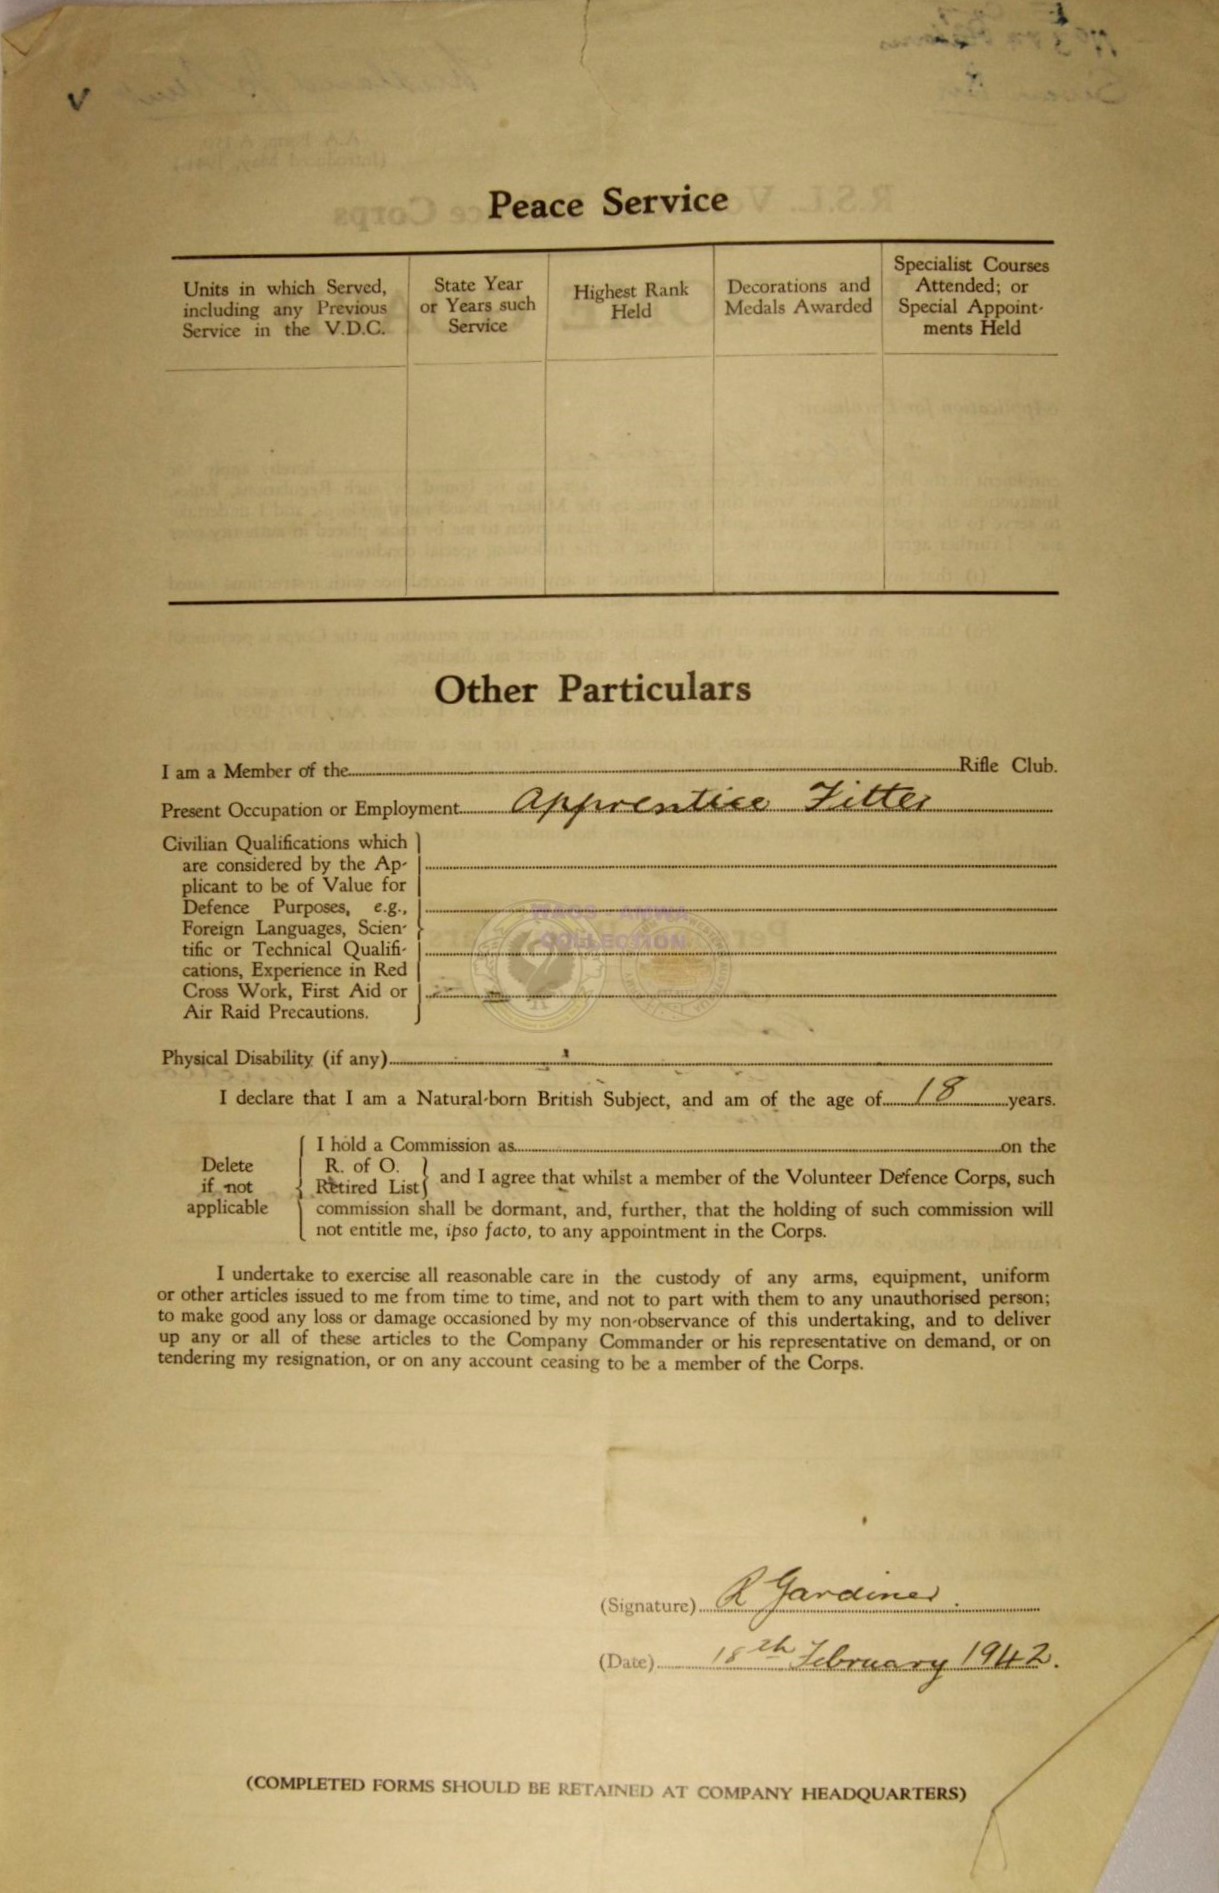 Peace Service
Units in which Served, including any Previous Service in the V.D.C.
State Year or Years such Service
Highest Rank Held
Decorations and Medals Awarded
Specialist Courses Attended; or Special Appoint-ments Held
Other Particulars
I am a Member of the Rifle Club.
Present Occupation or Employment Apprentice Fitter
Civilian Qualifications which
are considered by the Ap-
plicant to be of Value for
Defence Purposes, e.g.,
Foreign Languages, Scien-
tific or Technical Qualifi-
cations, Experience in Red
Cross Work, First Aid or
Air Raid Precautions.
WAGS - AMWA
COLLECTION
Physical Disability (if any)
I declare that I am a Natural-born British Subject, and am of the age of 18 years.
Delete
if not
applicable
I hold a Commission as on the
R. of O.
Retired List
and I agree that whilst a member of the Volunteer Defence Corps, such
commission shall be dormant, and, further, that the holding of such commission will
not entitle me, ipso facto, to any appointment in the Corps.
I undertake to exercise all reasonable care in the custody of any arms, equipment, uniform
or other articles issued to me from time to time, and not to part with them to any unauthorised person;
to make good any loss or damage occasioned by my non-observance of this undertaking, and to deliver
up any or all of these articles to the Company Commander or his representative on demand, or on
tendering my resignation, or on any account ceasing to be a member of the Corps.
(Signature) R Gardiner.
(Date) 18th February 1942.
(COMPLETED FORMS SHOULD BE RETAINED AT COMPANY HEADQUARTERS)